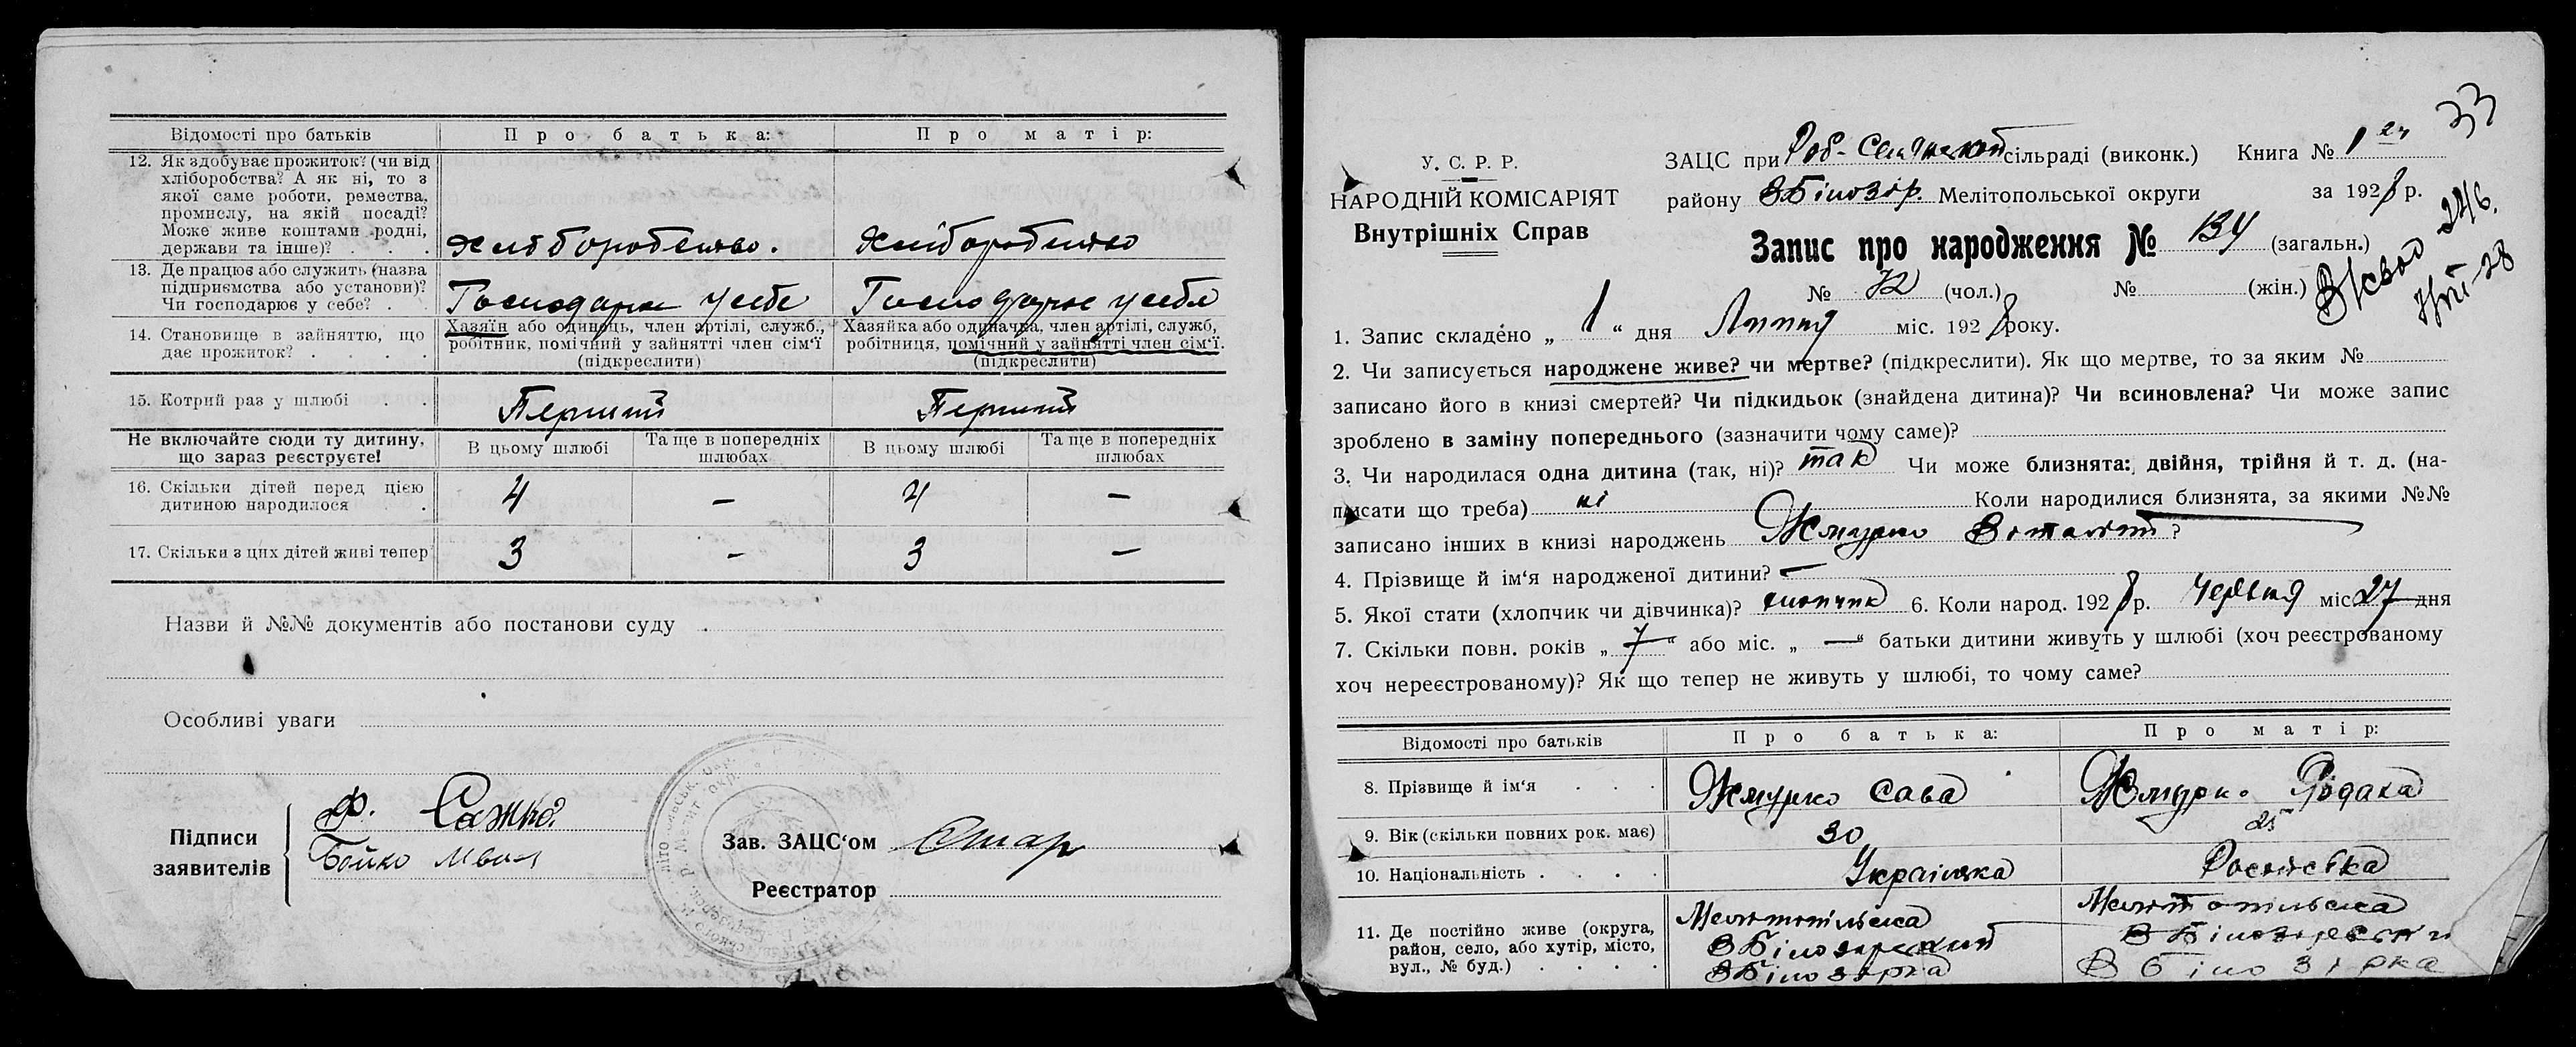 Відомості про батьків
Про батька:
Про матір:
12. Як здобуває прожиток? (чи від
хліборобства? А як ні, то з
якої саме роботи, ремества,
промислу, на якій посаді?
Може живе коштами родні,
держави та інше)? . . .
хліборобство.
хліборобство
13. Де працює або служить (назва
підприємства або установи)?
Чи господарює у себе? . .
Господарює у себе
Господарює у себе
14. Становище в зайняттю, що
дає прожиток? . . . .
Хазяїн або одинець, член артілі, служб.,
робітник, помічний у зайнятті член сім'ї
(підкреслити)
Хазяйка або одиначка, член артілі, служб,
робітниця, помічний у зайнятті член сім'ї.
(підкреслити)
15. Котрий раз у шлюбі . .
Перший
Перший
Не включайте сюди ту дитину,
що зараз реєструєте!
В цьому шлюбі
Та ще в попередніх
шлюбах
В цьому шлюбі
Та ще в попередніх
шлюбах
16. Скільки дітей перед цією
дитиною народилося .
4 – 4 –
17. Скільки з цих дітей живі тепер
3 – 3 –
Назви й №№ документів або постанови суду .
Особливі уваги
Підписи
заявителів
Ф. Сажко.
Бойко Іван
Зав. ЗАЦС'ом
Реєстратор
33
У. С. Р. Р.
НАРОДНІЙ КОМІСАРІЯТ
Внутрішніх Справ
ЗАЦС при сільраді (виконк.) Книга № 1
району ВБілозір. Мелітопольської округи за 1928 р.
Запис про народження № 134 (загальн.)
№ 72 (чол.) № (жін.)
1. Запис складено „ 1 “ дня Липня міс. 1928 року.
2. Чи записується народжене живе? чи мертве? (підкреслити). Як що мертве, то за яким №
записано його в книзі смертей? Чи підкидьок (знайдена дитина)? Чи всиновлена? Чи може запис
зроблено в заміну попереднього (зазначити чому саме)?
3. Чи народилася одна дитина (так, ні)? так Чи може близнята: двійня, трійня й т. д. (на-
писати що треба) ні Коли народилися близнята, за якими №№
записано інших в книзі народжень Жмурко Віталій ?
4. Прізвище й ім'я народженої дитини?
5. Якої стати (хлопчик чи дівчинка)? хлопчик 6. Коли народ. 1928 р. Червня міс. 27 дня
7. Скільки повн. років „ 7 “ або міс. „ — “ батьки дитини живуть у шлюбі (хоч реєстрованому
хоч нереєстрованому)? Як що тепер не живуть у шлюбі, то чому саме?
Відомості про батьків
Про батька:
Про матір:
8. Прізвище й ім'я . . .
Жмурко Сава
Жмурко
9. Вік (скільки повних рок. має)
30
25
10. Національність . . . .
Українка
Російська
11. Де постійно живе (округа,
район, село, або хутір, місто,
вул., № буд.) . . . .
Мелітопільська
ВБілозірський
ВБілозірка
Мелітопільська
ВБілозірський
ВБілозірка